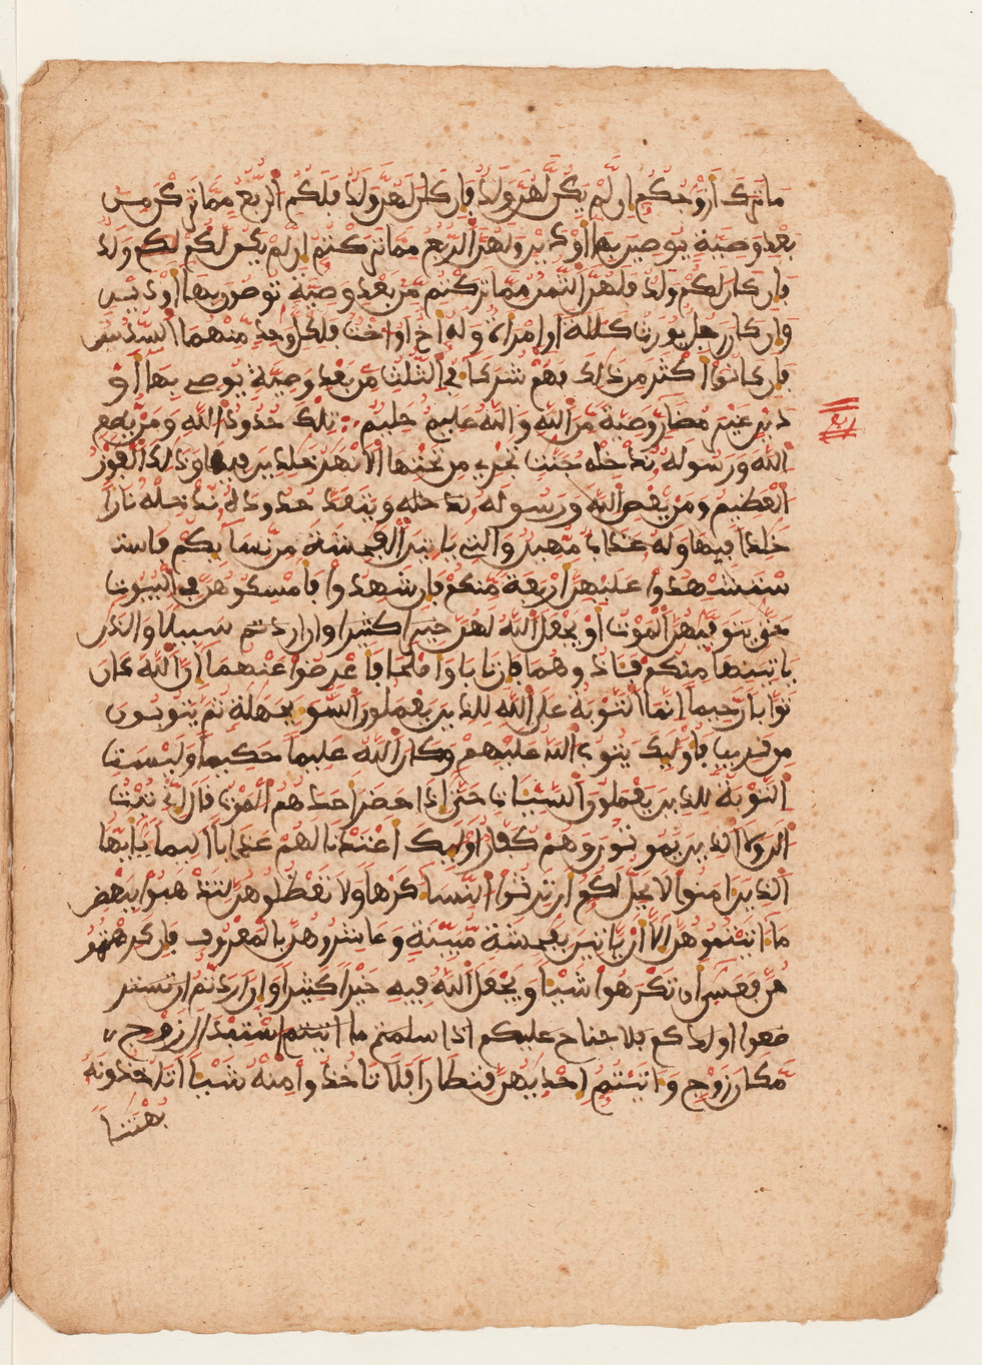 ما ترك أزوجكم إن لم يكن لهن ولد فإن كان لهن ولد فلكم الربع مما تركن من
بعد وصية يوصين بها أو دين ولهن الربع مما تركتم إن لم يكن لكم ولد
فإن كان لكم ولد فلهن الثمن مما تركتم من بعد وصية توصون بها أو دين
وإن كان رجل يورث كللة أو امرأة وله أخ أو أخت فلكل وحد منهما السدس
فإن كانوا أكثر من ذلك فهم شركا في الثلث من بعد وصية يوصي بها أو
دين غير مضار وصية من الله والله عليم حليم تلك حدود الله ومن يطع
الله ورسوله ندخله جنت تجري من تحتها الأنهر خلدين فيها وذلك الفوز
العظيم ومن يعص الله ورسوله ويتعد حدوده ندخله نارا
خلدا فيها وله عذاب مهين والتي ياتين الفحشة من نسآئكم فاست
شهدوا عليهن أربعة منكم فإن شهدوا فأمسكوهن في البيوت
حتى يتوفيهن الموت أو يجعل الله لهن سبيلا والذن
ياتينها منكم فـاذوهما فإن تابا وأصلحا فأعرضوا عنهما إن الله كان
توابا رحيما إنما التوبة على الله للذين يعملون السو بجهلة ثم يتوبون
من قريب فأوليك يتوب الله عليهم وكان الله عليما حكيما وليست
التوبة للذين يعملون السيـات حتى إذا حضر أحدهم الموت قال إني تبت
الن ولا الذين يموتون وهم كفار أوليك أعتدنا لهم عذابا أليما يأيها
الذين امنوا لا يحل لكم أن ترثوا النسا كرها ولا تعضلوهن لتذهبوا ببعض
ما اتيتموهن إلا أن ياتين بفحشة مبينة وعاشروهن بالمعروف فإن كرهتمو
هن فعسى أن تكرهوا شيـا ويجعل الله فيه خيرا كثيرا وإن أردتم أن تستر
ضعوا أولدكم فلا جناح عليكم إذا سلمتم ما اتيتم استبدال زوج
مكان زوج واتيتم إحديهن قنطارا فلا تاخذوا منه شيـا أتاخذونه
بهتنا